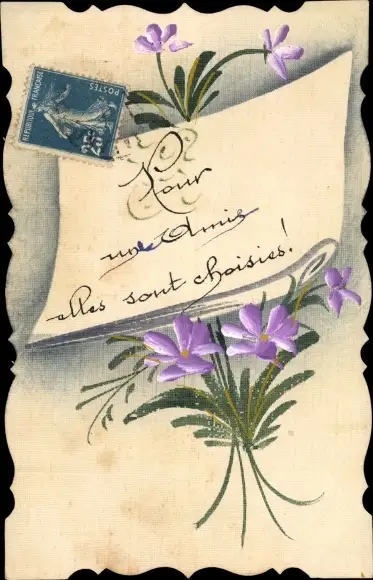 REPUBLIQUE FRANÇAISE
POSTES
25c
Pour
une Amie
elles sont choisies!